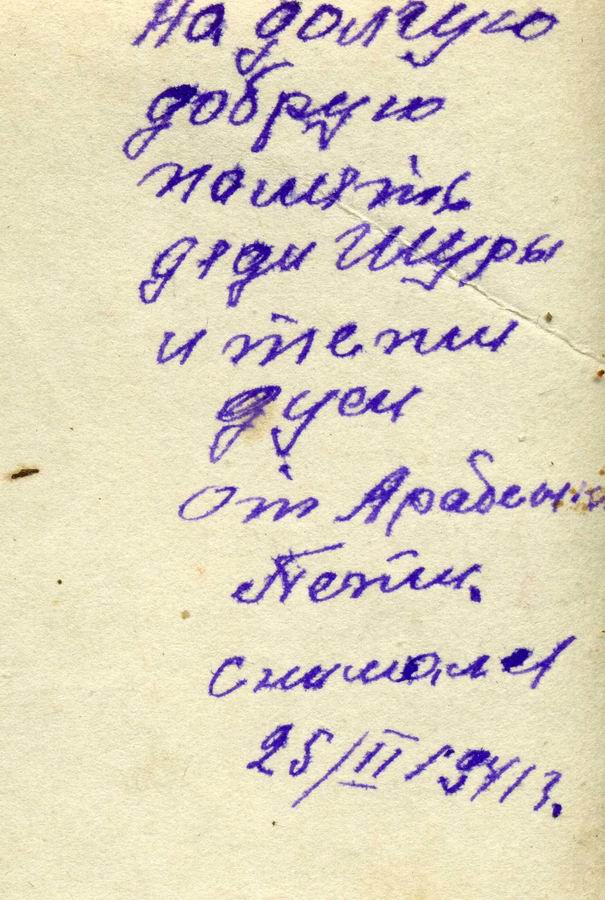 На долгую
добрую
память
дяди Шуры
и тети
Дуси
От
Пети.
снимался
25/II 1941 г.